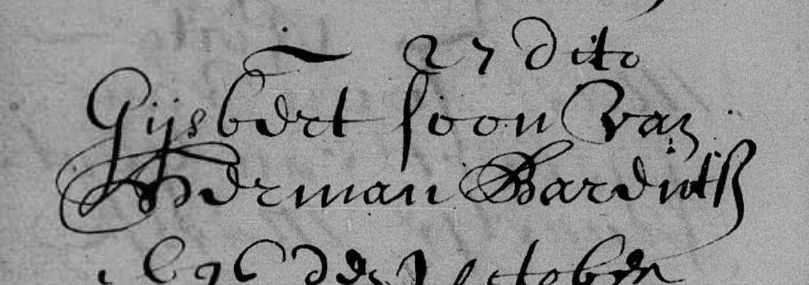 27 dito
Gijsbert soon van
Herman Barents
den October